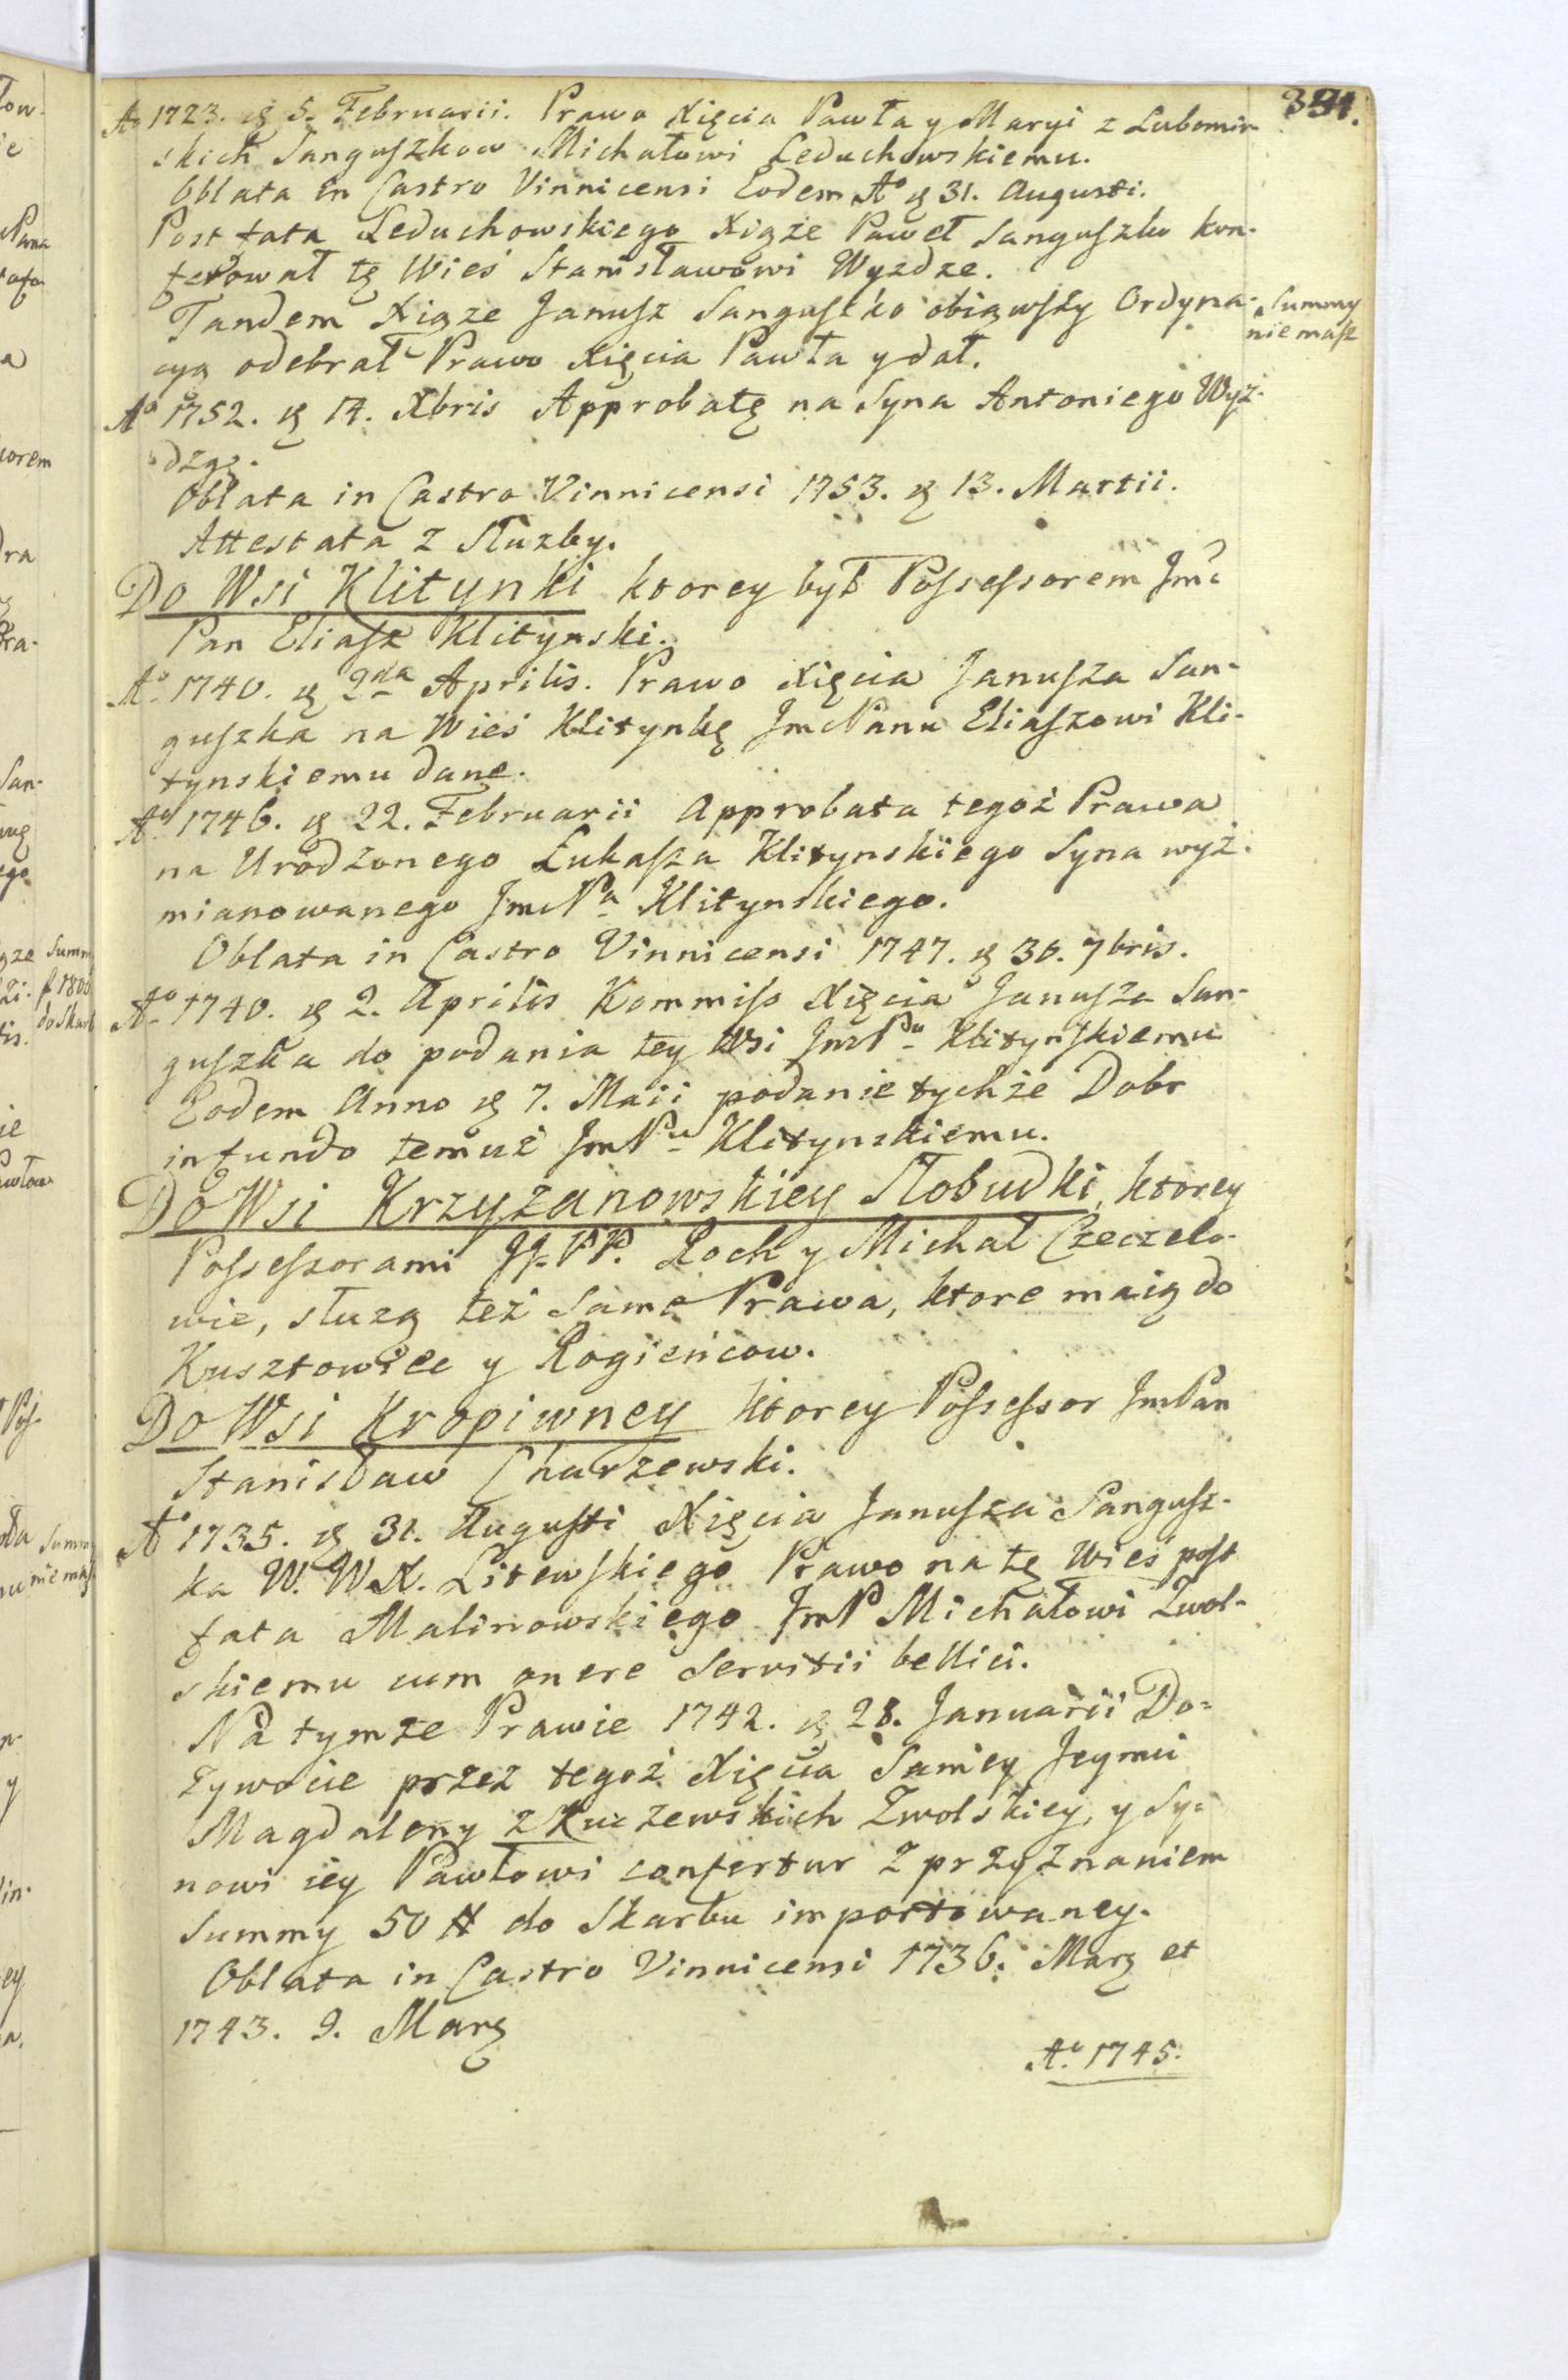 391.
Aº 1723. d. 5. Februarii. Prawo Xięcia Pawła y Maryi z Lubomir-
skich Sanguszkow Michałowi Leduchowskiemu.
Oblata in Castro Vinnicensi Eodem Aº d. 31. Augusti.
Post fata Leduchowskiego Xiąże Paweł Sanguszko kon-
ferował tę Wieś Stanisławowi Wyzdze.
Tandem Xiąze Janusz Sanguszko obiąwszy Ordyna-
cyą odebrał Prawo Xięcia Pawła y dał.
Summy
nie masz
Aº 1752. d. 14. Xbris Approbatę na Syna Antoniego Wyż-
dzgę.
Oblata in Castro Vinnicensi 1753. d. 13. Martii.
Attestata z Służby.
Do Wsi Klitynki ktorey był Possessorem Jmć
Pan Eliasz Klitynski.
Aº 1740. d. 2da Aprilis. Prawo Xięcia Janusza San-
guszka na Wieś Klitynkę Jmć Panu Eliaszowi Kli-
tynskiemu dane.
Aº 1746. d. 22. Februarii Approbata tegoż Prawa
na Urodzonego Łukasza Klitynskiego Syna wyż-
mianowanego JmcPa Klitynskiego.
Oblata in Castro Vinnicensi 1747. d. 30. 7bris.
Aº 1740. d. 2. Aprilis Kommiss Xięcia Janusza San-
guszka do podania tey Wsi JmPu Klitynskiemu
Eodem Anno d. 7. Maii podanie tychże Dobr
in fundo temuż JmPu Klitynskiemu.
Do Wsi Krzyżanowskiey Słobudki, ktorey
Possessorami JJ.PP. Roch y Michał Czeczelo-
wie, służą też same Prawa, ktore maią do
Kusztowiec y Rogieńcow.
Do Wsi Kropiwney ktorey Possessor JmPan
Stanisław Charzewski.
Aº 1735. d. 31. Augusti Xięcia Janusza Sangusz-
ka W. W.X. Litewskiego Prawo na tę Wieś post
fata Malinowskiego JmP Michałowi Zwol-
skiemu cum onere Servitii bellici.
Na tymże Prawie 1742. d. 28. Januarii Do-
zywocie przez tegoż Xięcia Samey Jeymci
Magdaleny z Kuczewskich Zwolskiey, y Sy-
nowi iey Pawłowi confertur z przyznaniem
Summy 50 # do Skarbu importowaney.
Oblata in Castro Vinnicensi 1736. Marz et
1743. 9. Marz
Aº 1745.